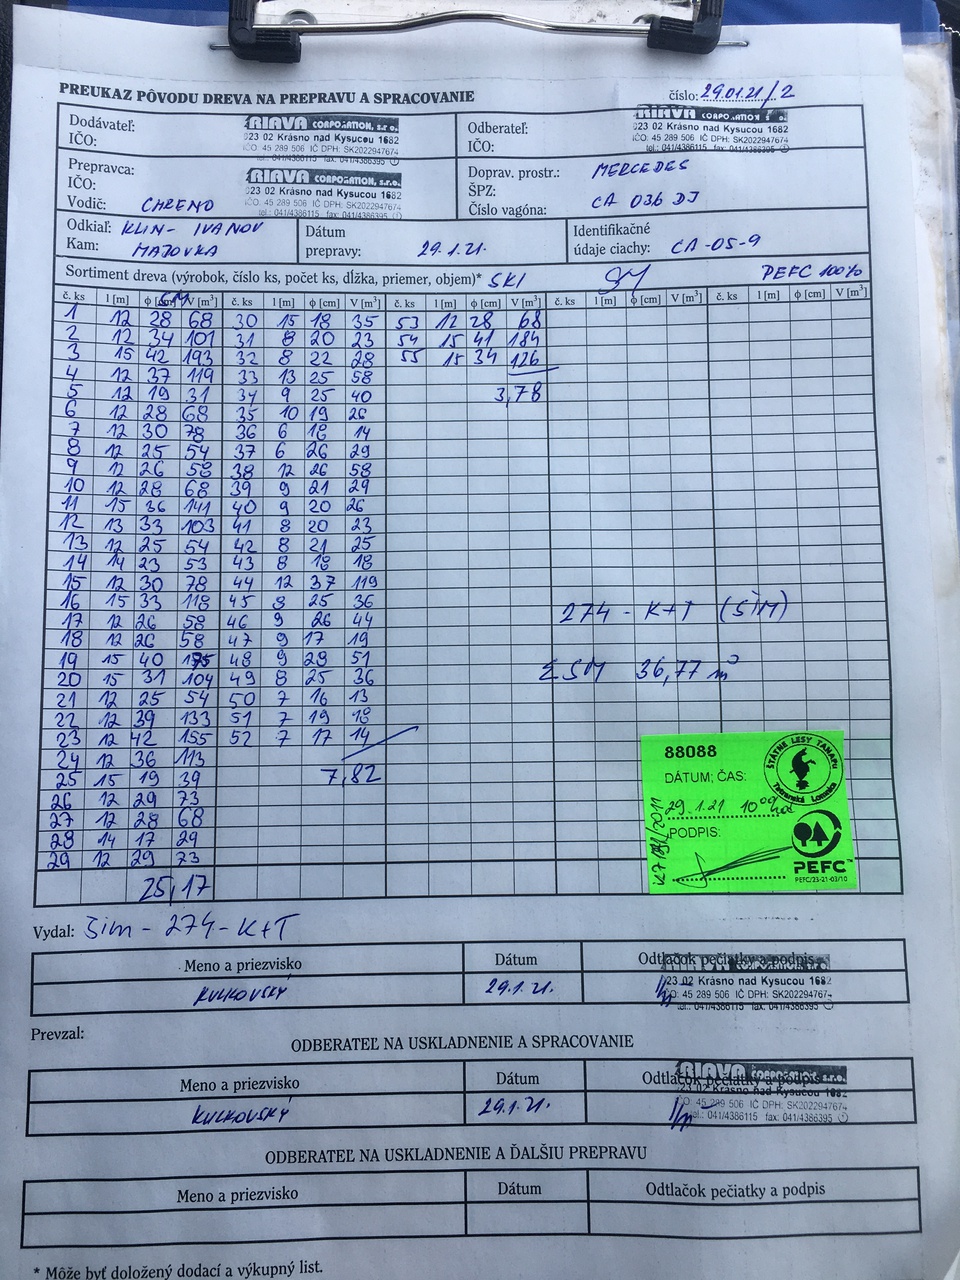 PREUKAZ PÔVODU DREVA NA PREPRAVU A SPRACOVANIE
číslo: 29.01.21/2
Dodávateľ:
IČO:
RIAVA CORPORATION, s.r.o.
023 02 Krásno nad Kysucou 1682
IČO: 45 289 506 IČ DPH: SK2022947674
tel.: 041/4386115 fax: 041/4386395
Odberateľ:
IČO:
RIAVA CORPORATION s.r.o.
023 02 Krásno nad Kysucou 1682
IČO: 45 289 506 IČ DPH: SK2022947674
tel.: 041/4386115 fax: 041/4386395
Prepravca:
IČO:
Vodič: CHRENO
RIAVA CORPORATION, s.r.o.
023 02 Krásno nad Kysucou 1682
IČO: 45 289 506 IČ DPH: SK2022947674
tel.: 041/4386115 fax: 041/4386395
Doprav. prostr.: MERCEDES
ŠPZ:
Číslo vagóna: CA 036 DJ
Odkiaľ: KLIN - IVANOV
Kam: MAJOVKA
Dátum
prepravy: 29.1.21.
Identifikačné
údaje ciachy: CA-05-9
Sortiment dreva (výrobok, číslo ks, počet ks, dĺžka, priemer, objem)* SKI SM PEFC 100%
č. ks l [m] ϕ [cm] V [m³] č. ks l [m] ϕ [cm] V [m³] č. ks l [m] ϕ [cm] V [m³] č. ks l [m] ϕ [cm] V [m³] č. ks l [m] ϕ [cm] V [m³]
1 12 28 68 30 15 18 35 53 12 28 68
2 12 34 101 31 8 20 23 54 15 41 184
3 15 42 193 32 8 22 28 55 15 34 126
4 12 37 119 33 13 25 58
5 12 19 31 34 9 25 40 3,78
6 12 28 68 35 10 19 26
7 12 30 78 36 6 18 14
8 12 25 54 37 6 26 29
9 12 26 58 38 12 26 58
10 12 28 68 39 9 21 29
11 15 36 141 40 9 20 26
12 13 33 103 41 8 20 23
13 12 25 54 42 8 21 25
14 14 23 53 43 8 18 18
15 12 30 78 44 12 37 119
16 15 33 118 45 8 25 36
17 12 26 58 46 9 26 44
18 12 26 58 47 9 17 19
19 15 40 175 48 9 28 51
20 15 31 104 49 8 25 36
21 12 25 54 50 7 16 13
22 12 39 133 51 7 19 18
23 12 42 155 52 7 17 14
24 12 36 113
25 15 19 39 7,82
26 12 29 73
27 12 28 68
28 14 17 29
29 12 29 73
25,17
274 - K+T (SIM)
Σ SM 36,77 m³
88088
DÁTUM; ČAS:
29.1.21 10⁰⁰ hod
PODPIS:
ŠTÁTNE LESY TANAPU
Tatranská Lomnica
PEFC™
PEFC/23-21-03/10
Vydal: Sim - 274 - K+T
Meno a priezvisko Dátum Odtlačok pečiatky a podpis
KULKOVSKÝ 29.1.21.
023 02 Krásno nad Kysucou 1682
IČO: 45 289 506 IČ DPH: SK2022947674
tel.: 041/4386115 fax: 041/4386395
Prevzal:
ODBERATEĽ NA USKLADNENIE A SPRACOVANIE
Meno a priezvisko Dátum Odtlačok pečiatky a podpis
KULKOVSKÝ 29.1.21.
RIAVA CORPORATION, s.r.o.
023 02 Krásno nad Kysucou 1682
IČO: 45 289 506 IČ DPH: SK2022947674
tel.: 041/4386115 fax: 041/4386395
ODBERATEĽ NA USKLADNENIE A ĎALŠIU PREPRAVU
Meno a priezvisko Dátum Odtlačok pečiatky a podpis
* Môže byť doložený dodací a výkupný list.